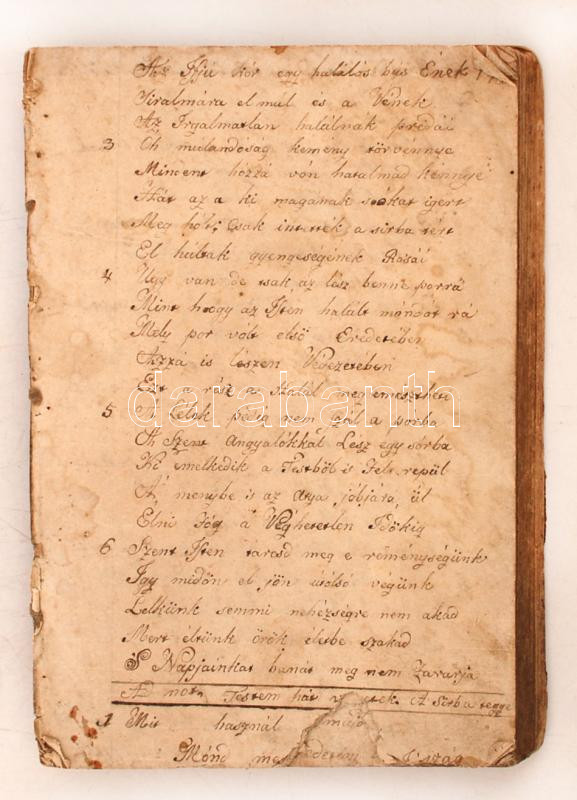 Az Ifjú kór egy halálos bús Ének
Siralmára el mul és a Vének
Az Irgalmatlan halálnak prédái
3 Oh mulandoság kemény törvénnye
Mindent hozzá von hatalmad kénnye
Hát az a ki magának sokat igért
Meg hólt, csak intették a sirba tért
El hultak gyengeségének Rosái
4 Ugy van de tsak az lész benne porrá
Mint hogy az Isten halált mondot rá
Mely por vólt elsö Eredetében
Azzá is lészen Vegezetében
Ezt a rász a Halál meg emészheti
5 A Lélek pedig nem száll a porba
A Szent Angyalókkal Lész egy sórba
Ki emelkedik a Testböl is Fels repül
A menybe is az Atya jóbjára ül
Elni fóg a Véghetetlen Idökig
6 Szent Isten tartsd meg e réménységünk
Igy midön el jön útólsó végünk
Lelkünk semmi nehézségre nem akad
Mert éltünk örök életbe szakad
S Napjainkat bánat meg nem zavarja
Ad nota Testem hát A Sirba
1 Mit használ
Mónd
darabanth